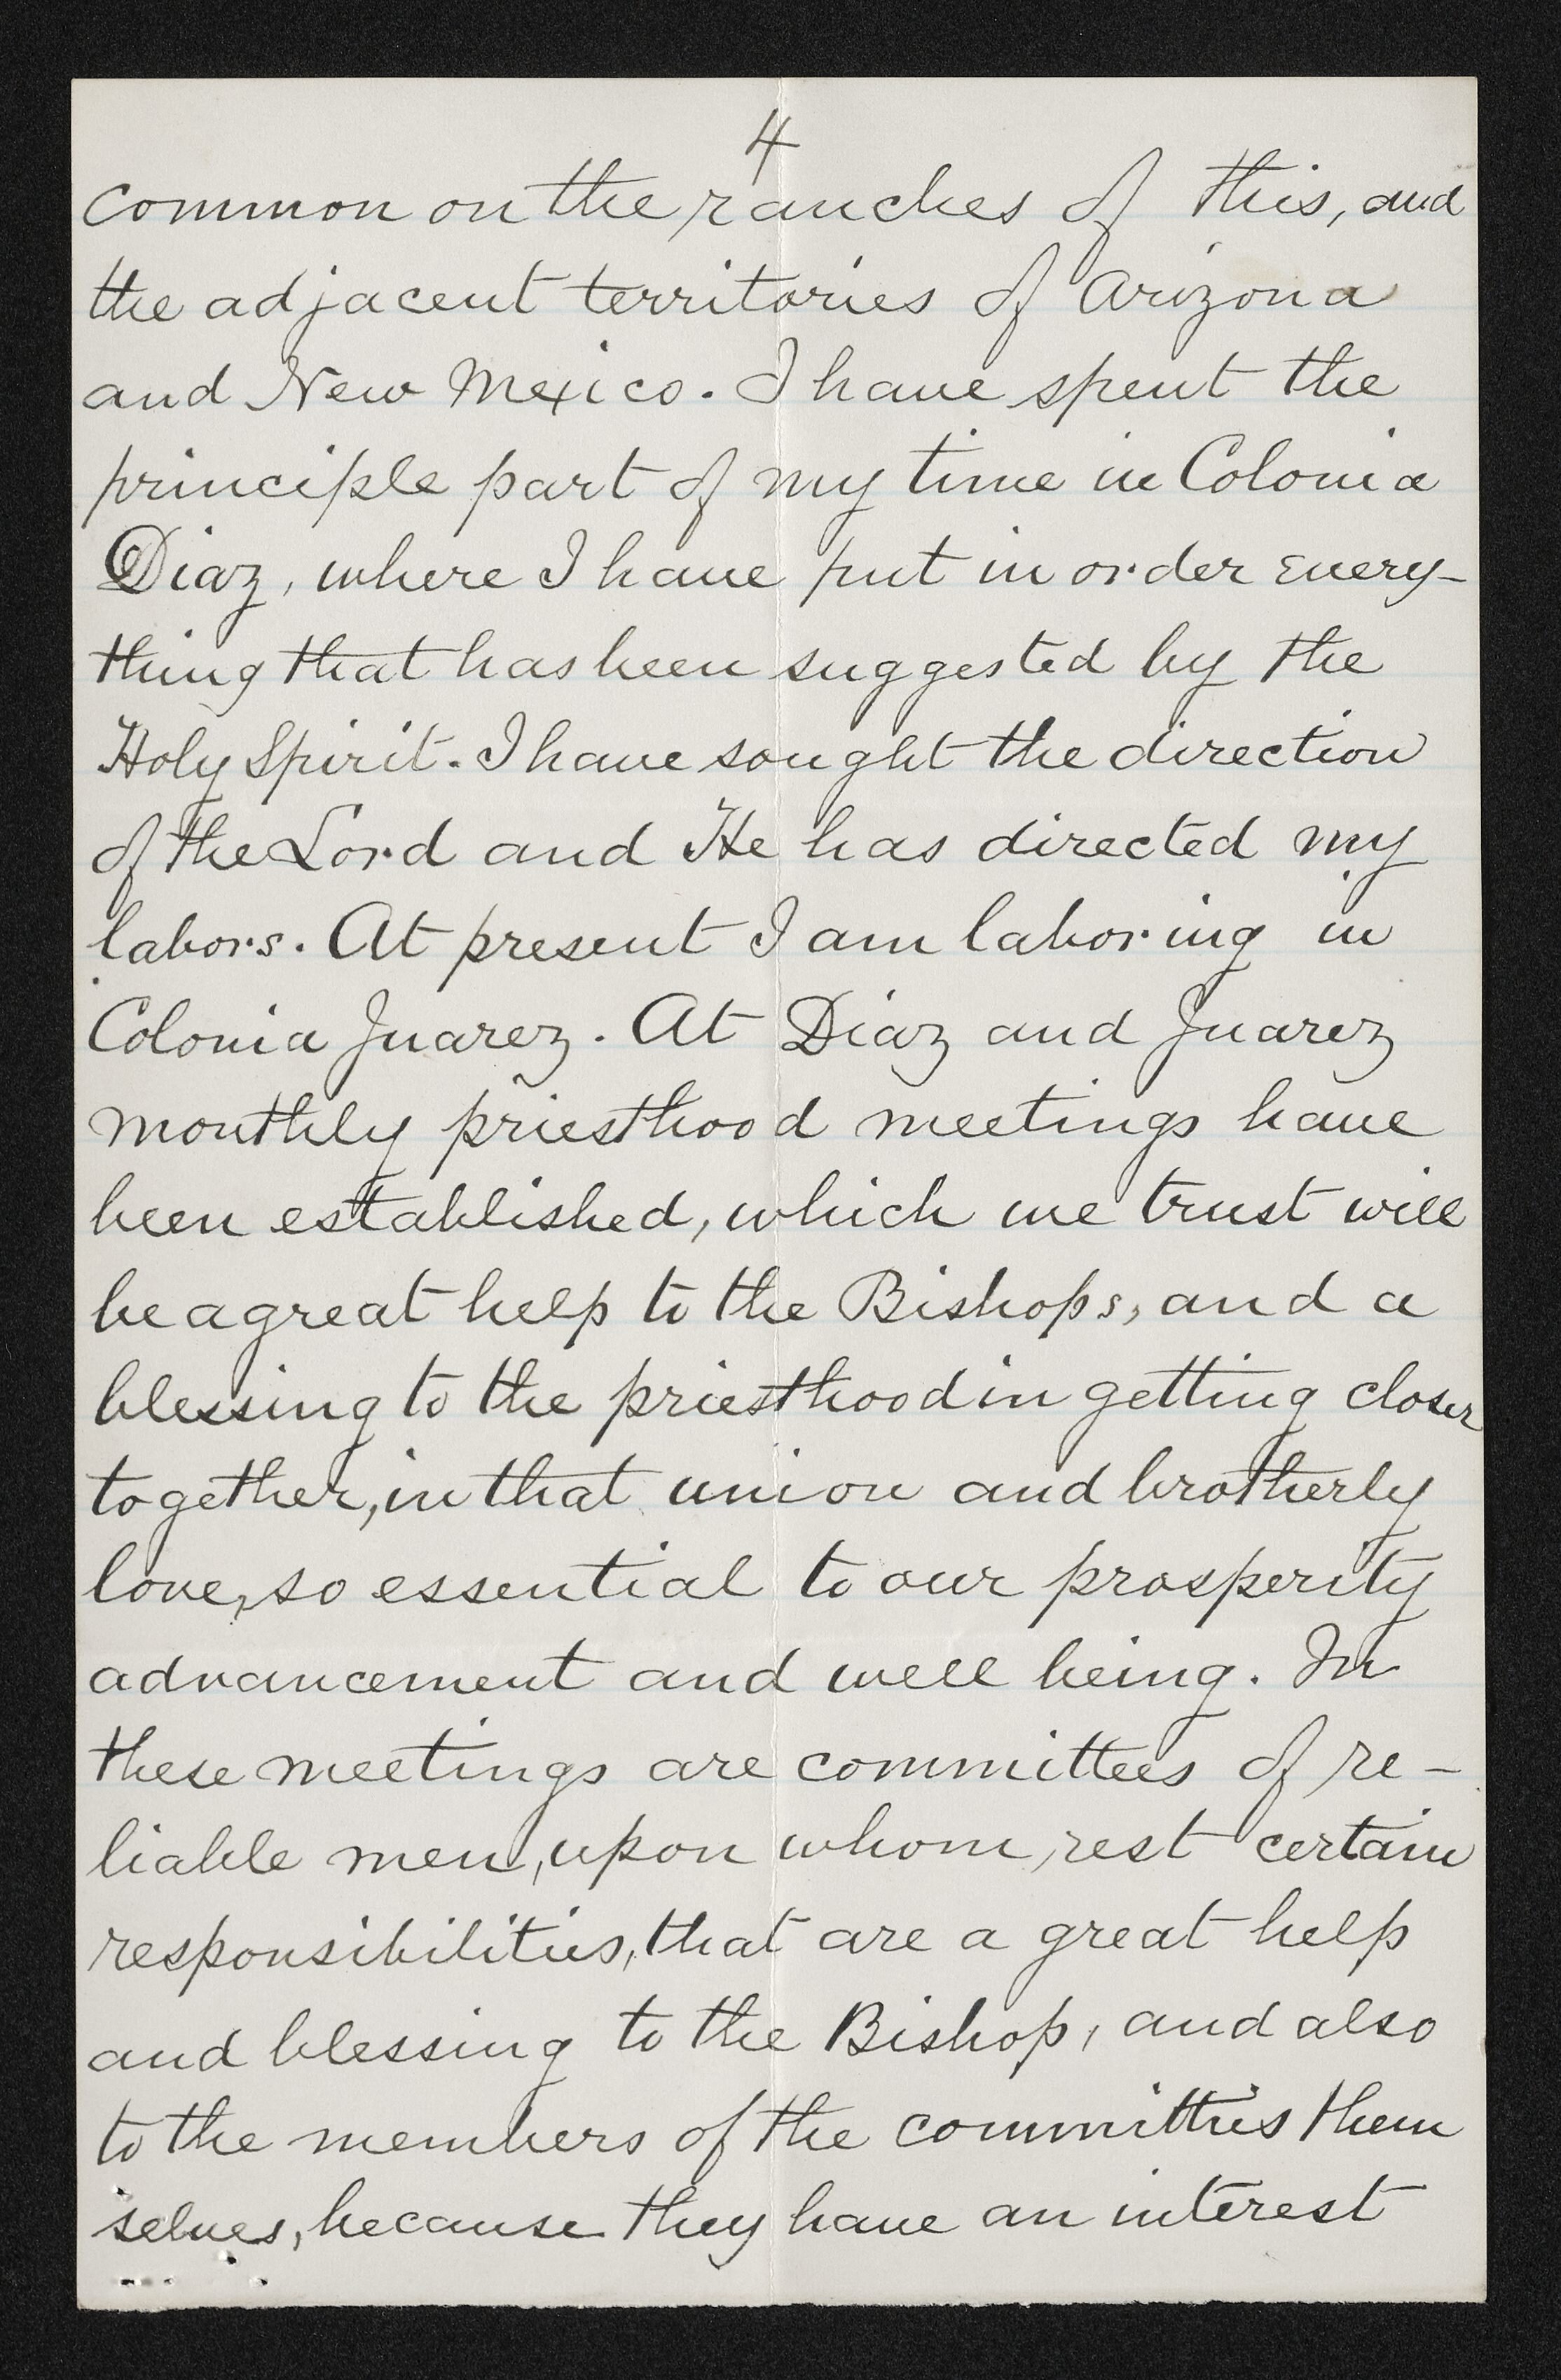 4
common on the ranches of this, and
the adjacent territories of Arizona
and New Mexico. I have spent the
principle part of my time in Colonia
Diaz, where I have put in order every-
thing that has been suggested by the
Holy Spirit. I have sought the direction
of the Lord and He has directed my
labors. At present I am laboring in
Colonia Juarez. At Diaz and Juarez
monthly priesthood meetings have
been established, which we trust will
be a great help to the Bishops, and a
blessing to the priesthood in getting closer
together, in that union and brotherly
love, so essential to our prosperity
advancement and well being. In
these meetings are committees of re-
liable men, upon whom, rest certain
responsibilities, that are a great help
and blessing to the Bishop, and also
to the members of the committies them
selves, because they have an interest